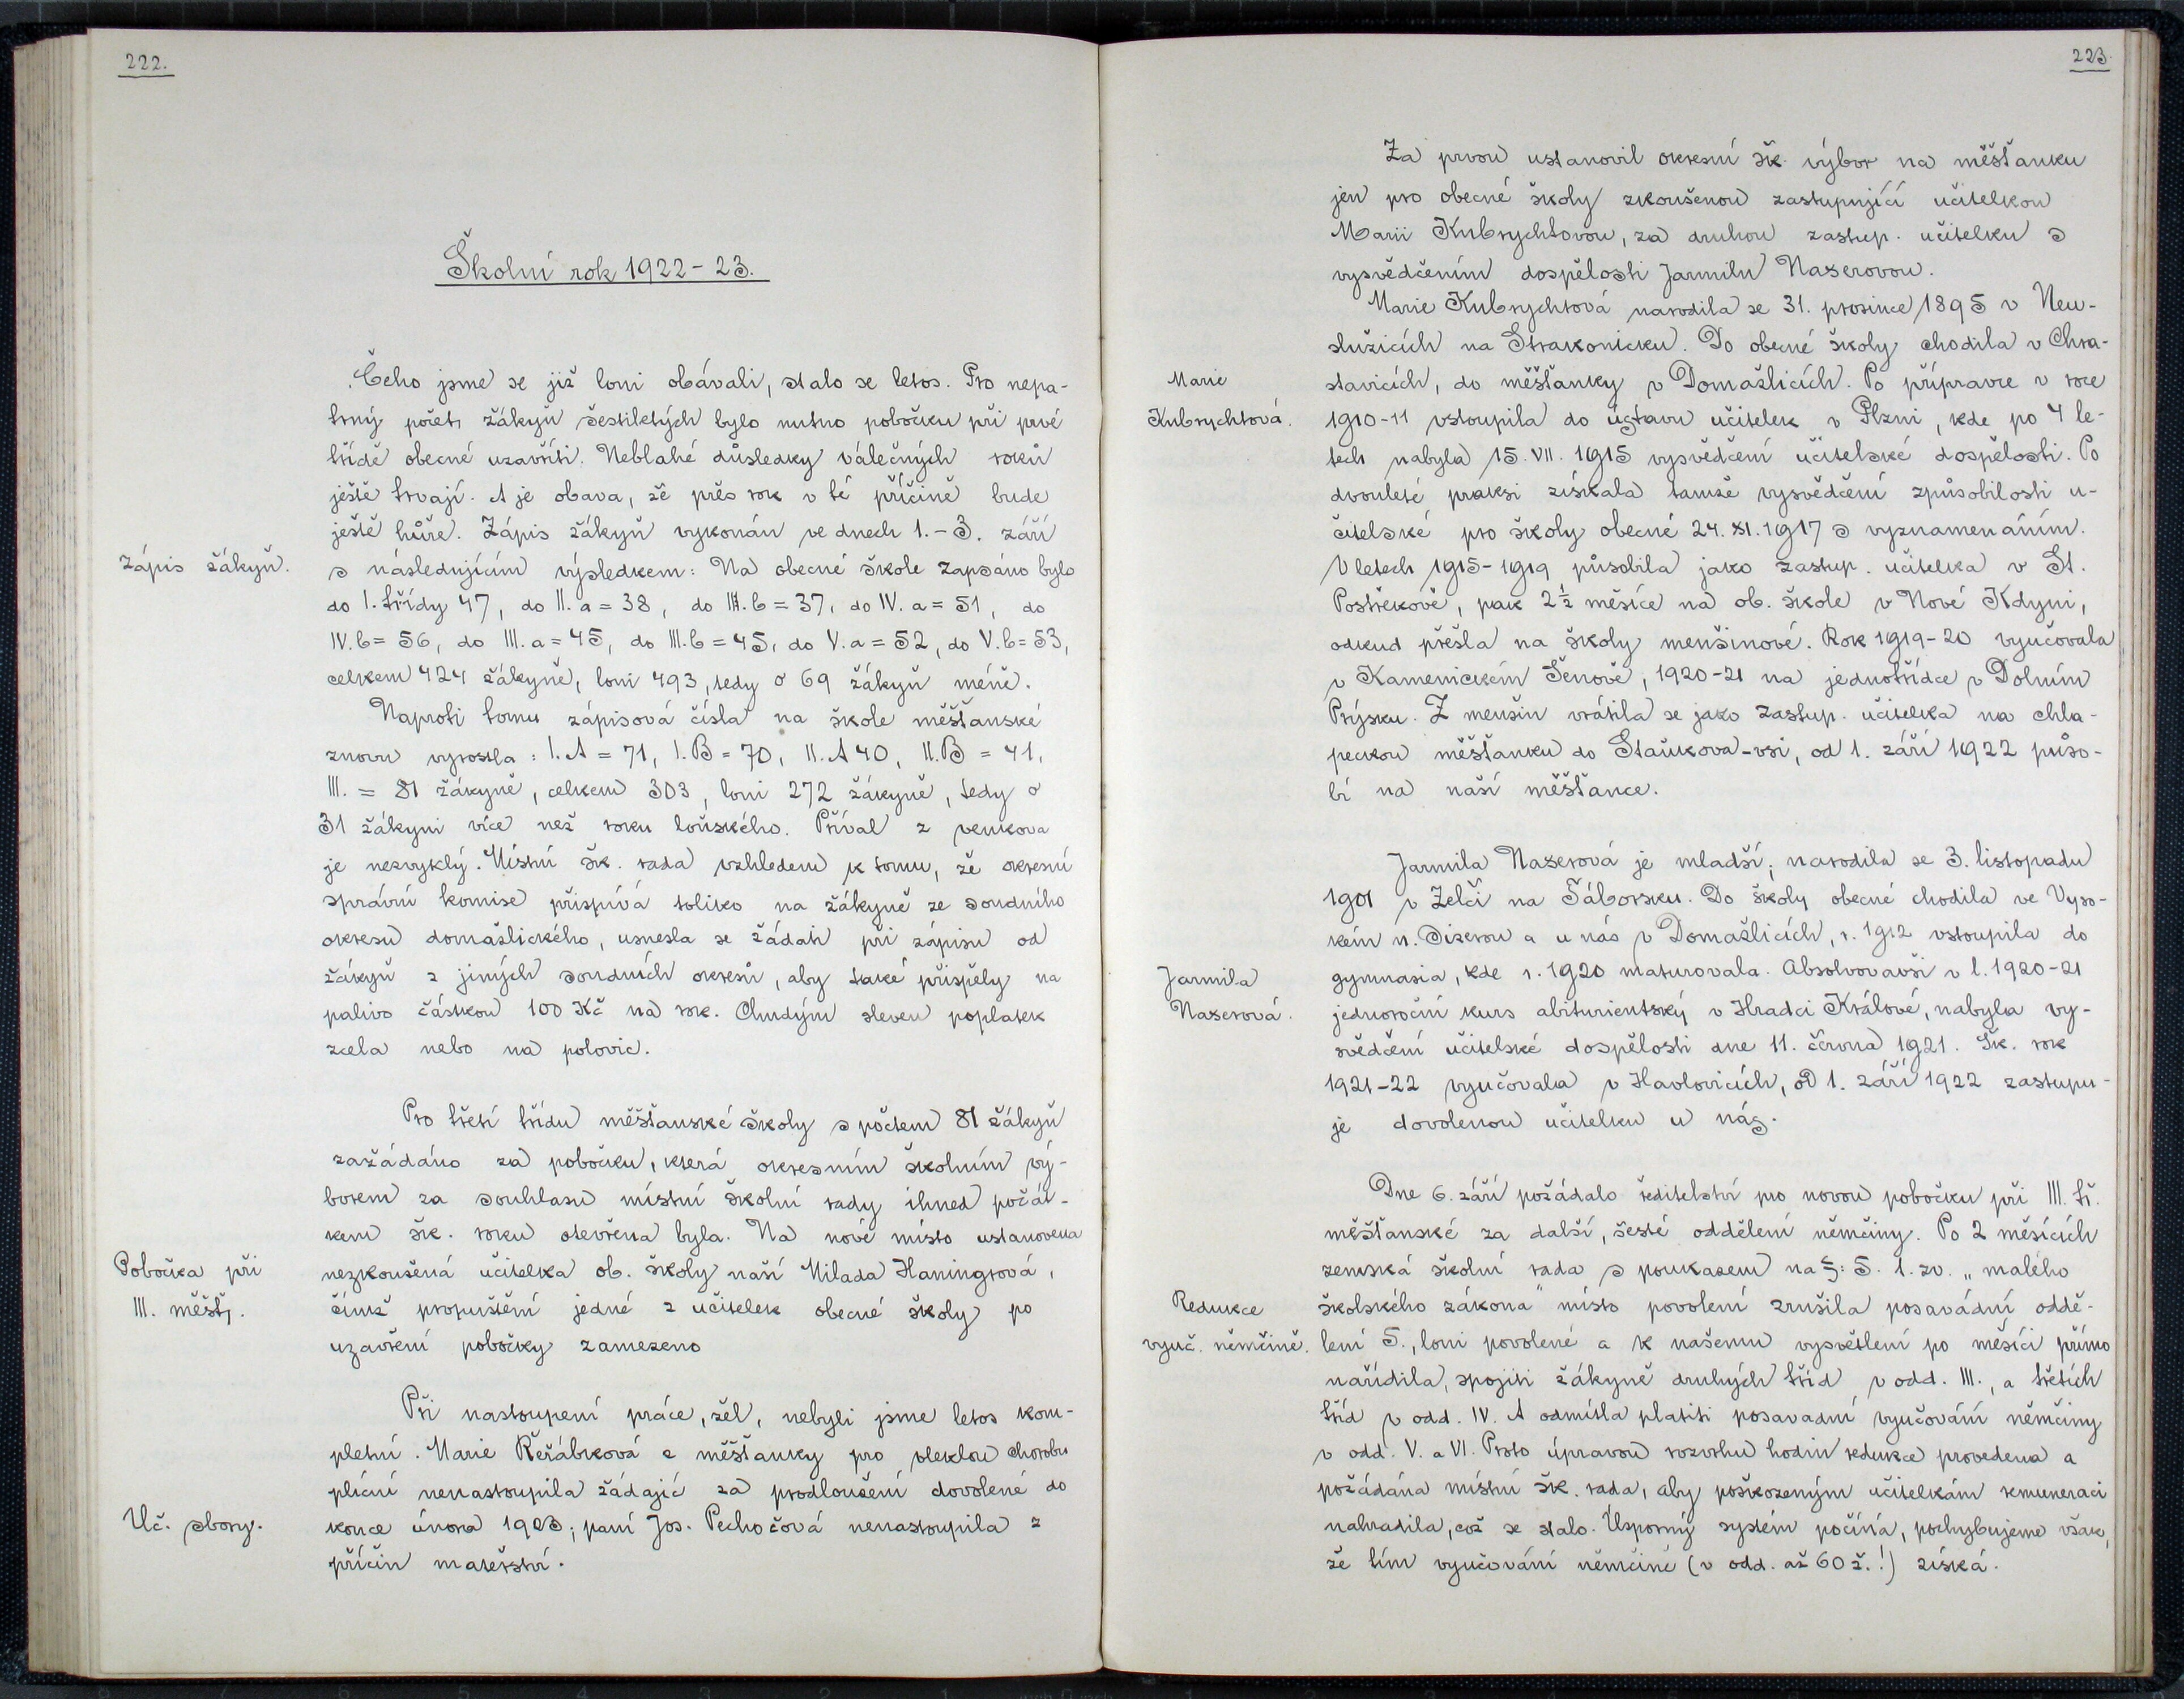 222.
Školní rok 1922-23.
Čeho jsme se již loni obávali, stalo se letos. Pro nepa-
trný počet žákyň šestiletých bylo nutno pobočku při prvé
třídě obecné uzavříti. Neblahé důsledky válečných roků
ještě trvají. A je obava, že přes rok v té příčině bude
ještě hůře. Zápis žákyň vykonán ve dnech 1.-3. září
Zápis žákyň.
s následujícím výsledkem: Na obecné škole zapsáno bylo
do I. třídy 47, do II. a = 38, do II. b = 37, do IV. a = 51, do
IV. b = 56, do III. a = 45, do III. b = 45, do V. a = 52, do V. b = 53,
celkem 424 žákyně, loni 493, tedy o 69 žákyň méně.
Naproti tomu zápisová čísla na škole měšťanské
znovu vyrostla: I. A = 71, I. B = 70, II. A 40, II. B = 41,
III. = 81 žákyně, celkem 303, loni 272 žákyně, tedy o
31 žákyni více než roku loňského. Příval z venkova
je nezvyklý. Místní šk. rada vzhledem k tomu, že okresní
správní komise přispívá toliko na žákyně ze soudního
okresu domažlického, usnesla se žádati při zápisu od
žákyň z jiných soudních okresů, aby také přispěly na
palivo částkou 100 Kč na rok. Chudým sleven poplatek
zcela nebo na polovic.
Pro třetí třídu měšťanské školy s počtem 81 žákyň
zažádáno za pobočku, která okresním školním vý-
borem za souhlasu místní školní rady ihned počát-
kem šk. roku otevřena byla. Na nové místo ustanovena
Pobočka při
III. měšť.
nezkoušená učitelka ob. školy naší Milada Haningrová,
čímž propuštění jedné z učitelek obecné školy po
uzavření pobočky zamezeno
Při nastoupení práce, žel, nebyli jsme letos kom-
pletní. Marie Řeřábková z měšťanky pro vleklou chorobu
plícní nenastoupila žádajíc za prodloužení dovolené do
Uč. sbory.
konce února 1923; paní Jos. Pechočová nenastoupila z
příčin mateřství.
223.
Za prvou ustanovil okresní šk. výbor na měšťanku
jen pro obecné školy zkoušenou zastupující učitelkou
Marii Kubrychtovou, za druhou zastup. učitelku s
vysvědčením dospělosti Jarmilu Naxerovou.
Marie Kubrychtová narodila se 31. prosince 1895 v Neu-
služicích na Strakonicku. Do obecné školy chodila v Chra-
Marie
Kubrychtová.
stavicích, do měšťanky v Domažlicích. Po přípravce v roce
1910-11 vstoupila do ústavu učitelek v Plzni, kde po 4 le-
tech nabyla 15. VII. 1915 vysvědčení učitelské dospělosti. Po
dvouleté praksi získala tamže vysvědčení způsobilosti u-
čitelské pro školy obecné 24. XI. 1917 s vyznamenáním.
V letech 1915-1919 působila jako zastup. učitelka v St.
Postřekově, pak 2½ měsíce na ob. škole v Nové Kdyni,
odkud přešla na školy menšinové. Rok 1919-20 vyučovala
v Kamenickém Šenově, 1920-21 na jednotřídce v Dolním
Prysku. Z menšin vrátila se jako zastup. učitelka na chla-
peckou měšťanku do Staňkova-vsi, od 1. září 1922 půso-
bí na naší měšťance.
Jarmila Naxerová je mladší; narodila se 3. listopadu
1901 v Želči na Táborsku. Do školy obecné chodila ve Vyso-
kém n. Jizerou a u nás v Domažlicích, r. 1912 vstoupila do
Jarmila
Naxerová.
gymnasia, kde r. 1920 maturovala. Absolvovavši v l. 1920-21
jednoroční kurs abiturientský v Hradci Králové, nabyla vy-
svědčení učitelské dospělosti dne 11. června 1921. Šk. rok
1921-22 vyučovala v Havlovicích, od 1. září 1922 zastupu-
je dovolenou učitelku u nás.
Dne 6. září požádalo ředitelství pro novou pobočku při III. tř.
měšťanské za další, šesté oddělení němčiny. Po 2 měsících
zemská školní rada s poukazem na §: 5. 1. zv. „malého
Redukce
vyuč. němčině.
školského zákona" místo povolení zrušila posavádní oddě-
lení 5., loni povolené a k našemu vysvětlení po měsíci přímo
nařídila, spojiti žákyně druhých tříd v odd. III., a třetích
tříd v odd. IV. A odmítla platiti posavadní vyučování němčiny
v odd. V. a VI. Proto úpravou rozvrhu hodin redukce provedena a
požádána místní šk. rada, aby poškozeným učitelkám remuneraci
nahradila, což se stalo. Úsporný systém počíná, pochybujeme však,
že tím vyučování němčině (v odd. až 60 ž.!) získá.